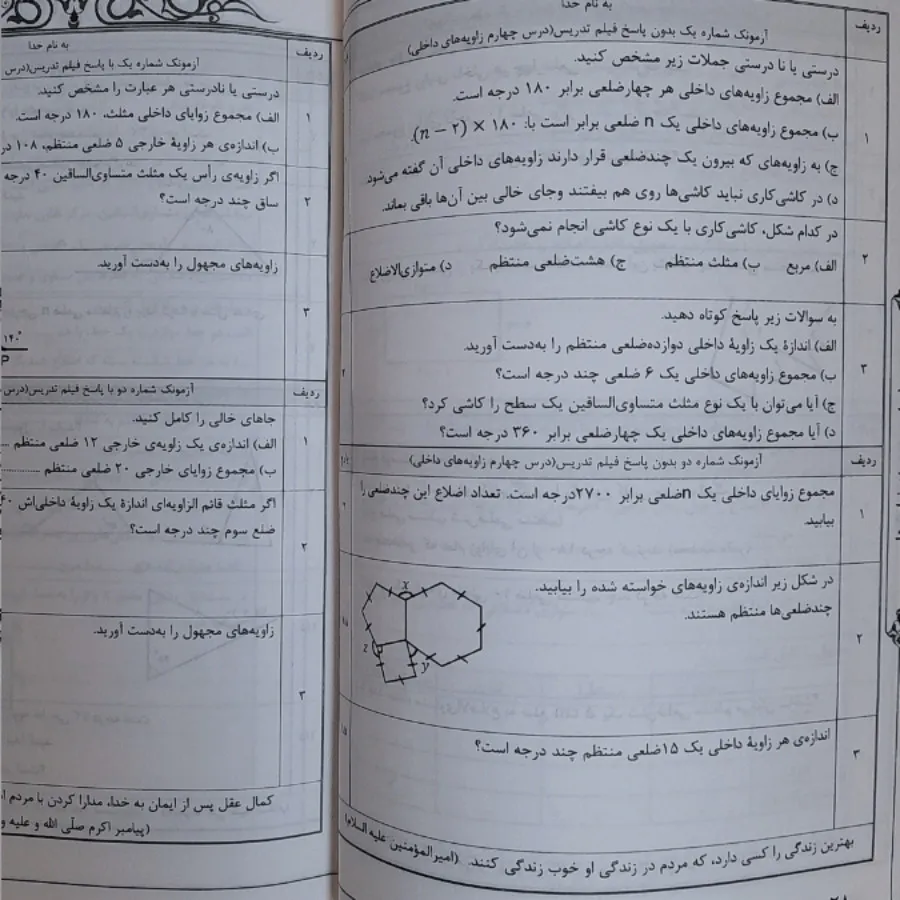 به نام خدا
ردیف
آزمونک شماره یک بدون پاسخ فیلم تدریس(درس چهارم زاویه‌های داخلی)
۱
درستی یا نا درستی جملات زیر مشخص کنید.
الف) مجموع زاویه‌های داخلی هر چهارضلعی برابر ۱۸۰ درجه است.
ب) مجموع زاویه‌های داخلی یک n ضلعی برابر است با: ۱۸۰ × (n − ۲).
ج) به زاویه‌های که بیرون یک چندضلعی قرار دارند زاویه‌های داخلی آن گفته می‌شود.
د) در کاشی‌کاری نباید کاشی‌ها روی هم بیفتند وجای خالی بین آن‌ها باقی بماند.
۲
در کدام شکل، کاشی‌کاری با یک نوع کاشی انجام نمی‌شود؟
الف) مربع ب) مثلث منتظم ج) هشت‌ضلعی منتظم د) متوازی‌الاضلاع
۳
به سوالات زیر پاسخ کوتاه دهید.
الف) اندازۀ یک زاویۀ داخلی دوازده‌ضلعی منتظم را به‌دست آورید.
ب) مجموع زاویه‌های داخلی یک ۶ ضلعی چند درجه است؟
ج) آیا می‌توان با یک نوع مثلث متساوی‌الساقین یک سطح را کاشی کرد؟
د) آیا مجموع زاویه‌های داخلی یک چهارضلعی برابر ۳۶۰ درجه است؟
ردیف
آزمونک شماره دو بدون پاسخ فیلم تدریس(درس چهارم زاویه‌های داخلی)
۱
مجموع زوایای داخلی یک nضلعی برابر ۲۷۰۰درجه است. تعداد اضلاع این چندضلعی را
بیابید.
۲
در شکل زیر اندازه‌ی زاویه‌های خواسته شده را بیابید.
چندضلعی‌ها منتظم هستند.
x
z
y
۳
اندازه‌ی هر زاویۀ داخلی یک ۱۵ضلعی منتظم چند درجه است؟
بهترین زندگی را کسی دارد، که مردم در زندگی او خوب زندگی کنند. (امیرالمؤمنین علیه السلام)
به نام خدا
ردیف
آزمونک شماره یک با پاسخ فیلم تدریس(درس
۱
درستی یا نادرستی هر عبارت را مشخص کنید.
الف) مجموع زوایای داخلی مثلث، ۱۸۰ درجه است.
ب) اندازه‌ی هر زاویۀ خارجی ۵ ضلعی منتظم، ۱۰۸ در
۲
اگر زاویه‌ی رأس یک مثلث متساوی‌الساقین ۴۰ درجه
ساق چند درجه است؟
۳
زاویه‌های مجهول را به‌دست آورید.
۱۴۰°
P
ردیف
آزمونک شماره دو با پاسخ فیلم تدریس(درس
۱
جاهای خالی را کامل کنید.
الف) اندازه‌ی یک زاویه‌ی خارجی ۱۲ ضلعی منتظم ...
ب) مجموع زوایای خارجی ۲۰ ضلعی منتظم ............
۲
اگر مثلث قائم الزاویه‌ای اندازۀ یک زاویۀ داخلی‌اش ۴۰
ضلع سوم چند درجه است؟
۳
زاویه‌های مجهول را به‌دست آورید.
کمال عقل پس از ایمان به خدا، مدارا کردن با مردم
(پیامبر اکرم صلّی الله و علیه و